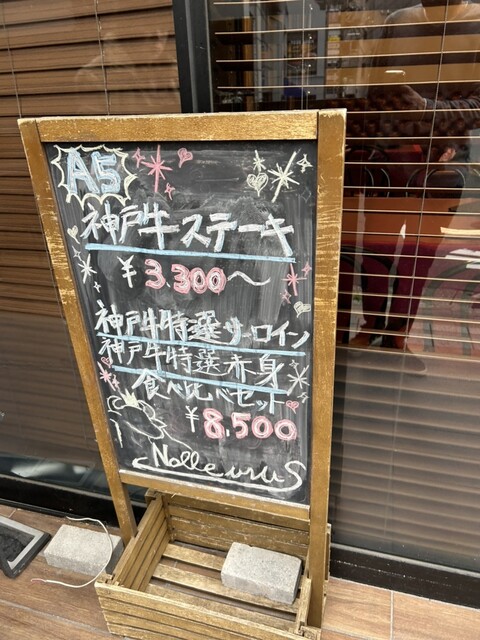 A5
神戸牛ステーキ
¥3,300〜
神戸牛特選サーロイン
神戸牛特選赤身
食べ比べセット
¥8,500